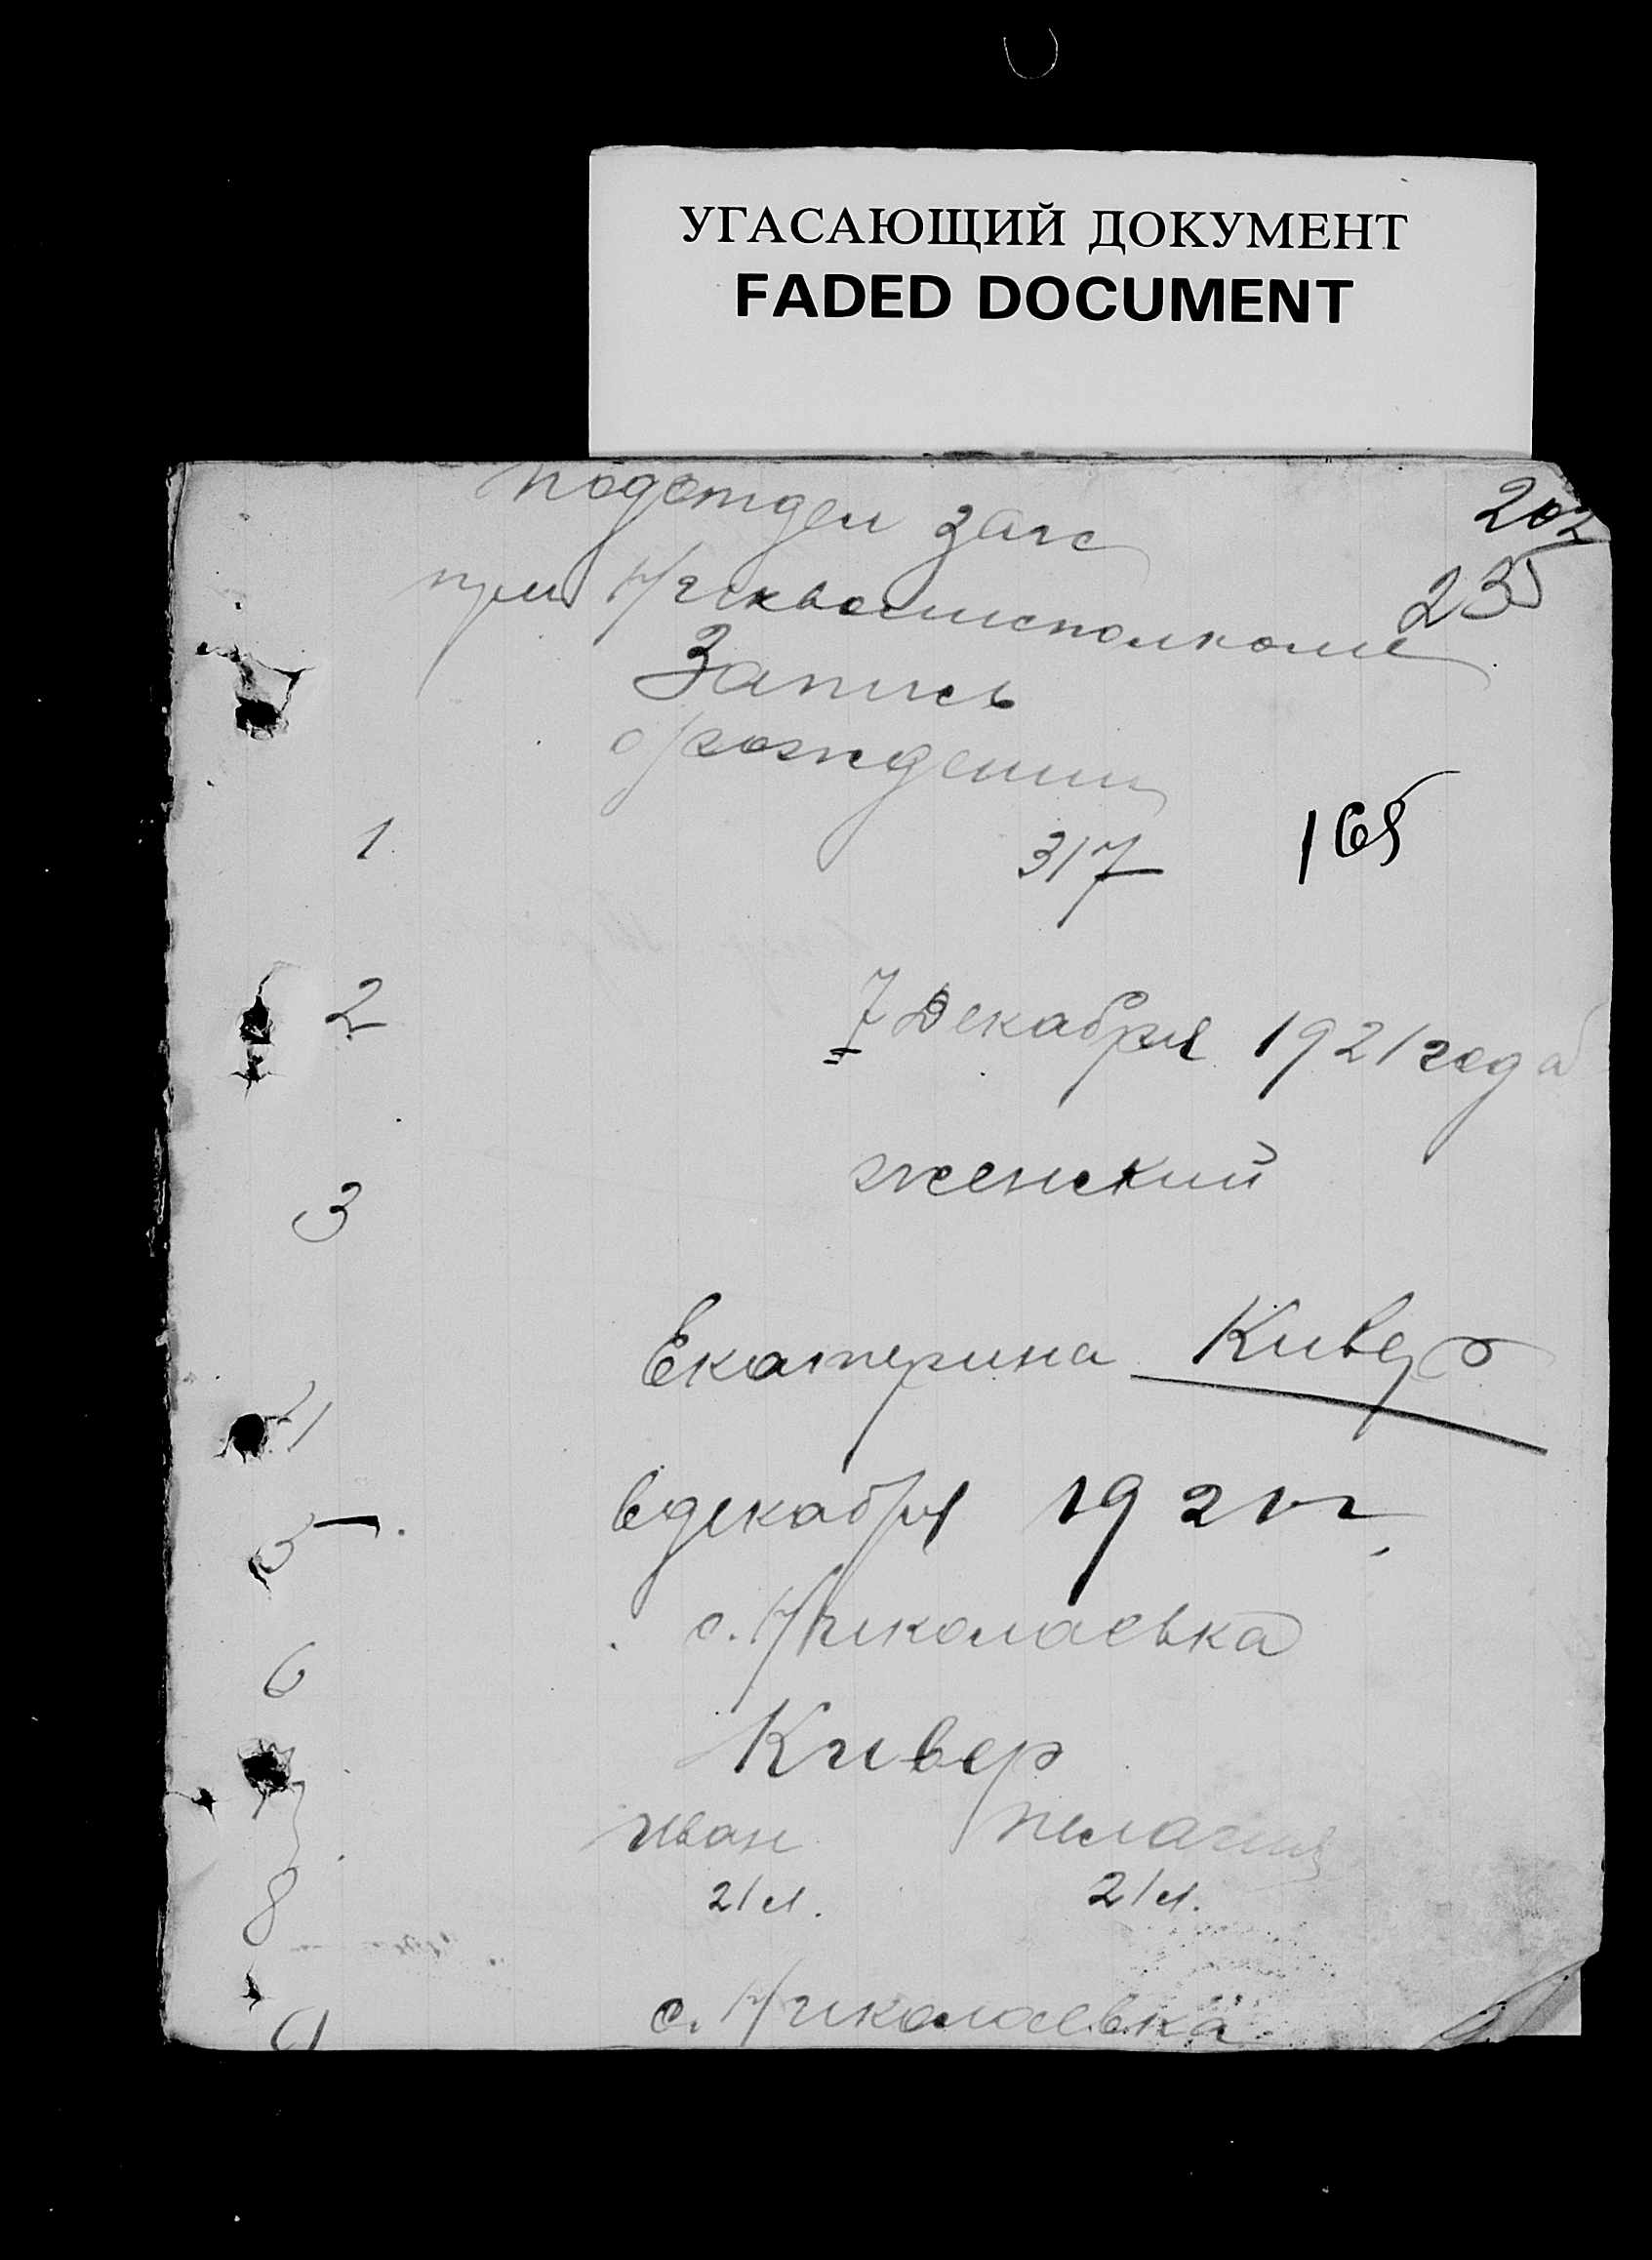 УГАСАЮЩИЙ ДОКУМЕНТ
FADED DOCUMENT
подотдел загс
202
при
235
Запись
о рождении
1 317 165
2 7 Декабря 1921 года
3 женский
4 Екатерина Кивер
5 6 декабря 1921 г.
6 с. Николаевка
Кивер
7 Иван пелагия
8 21 л. 21 л.
9 с. Николаевка